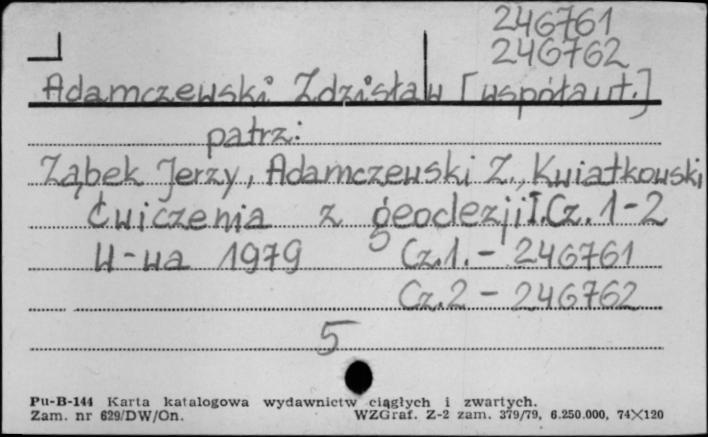 246761
246762
Adamczewski Zdzisław [współaut.]
patrz:
Ząbek Jerzy, Adamczewski Z., Kwiatkowski
Ćwiczenia z geodezji I. Cz. 1-2
W-wa 1979 Cz.1. - 246761
Cz.2 - 246762
5
Pu-B-144 Karta katalogowa wydawnictw ciągłych i zwartych.
Zam. nr 629/DW/On. WZGraf. Z-2 zam. 379/79, 6.250.000, 74×120